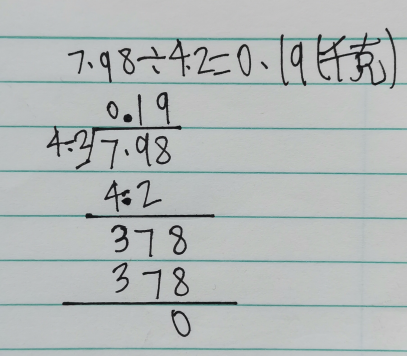 7.98÷4.2=0.19(千克)
0.19
4.2 7.98
4.2
378
378
0